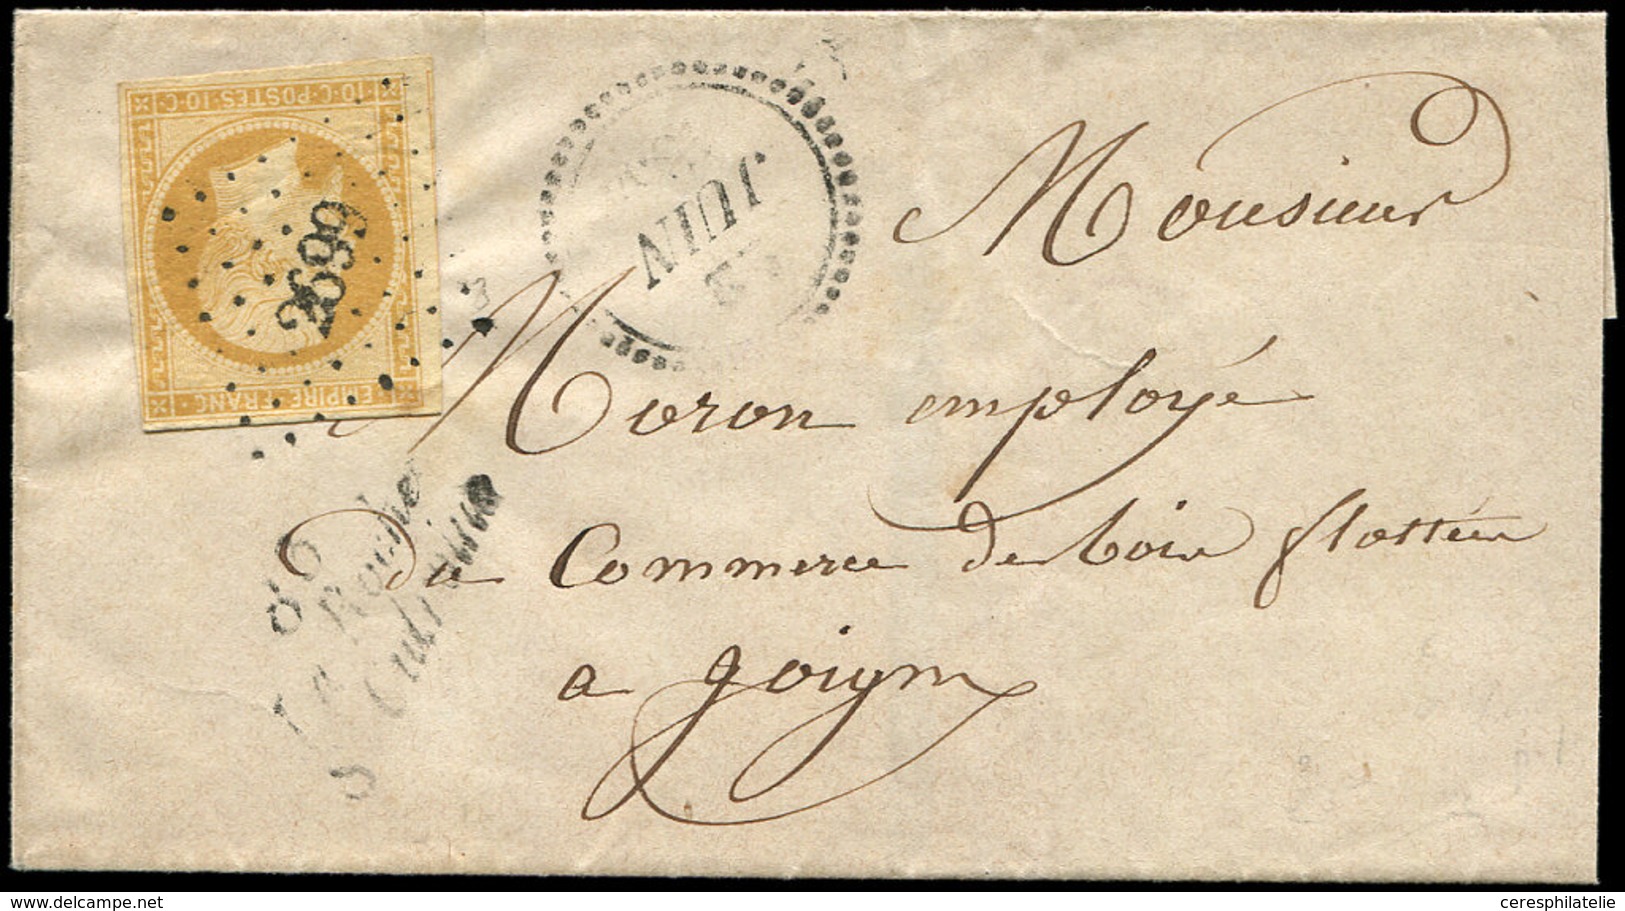 10·C·POSTES·10·C
2699
EMPIRE·FRANC·
JUIN
86
La Roche
S
Monsieur
Moron employé
du Commerce de bois flotté
a Joigny
www.delcampe.net
ceresphilatelie